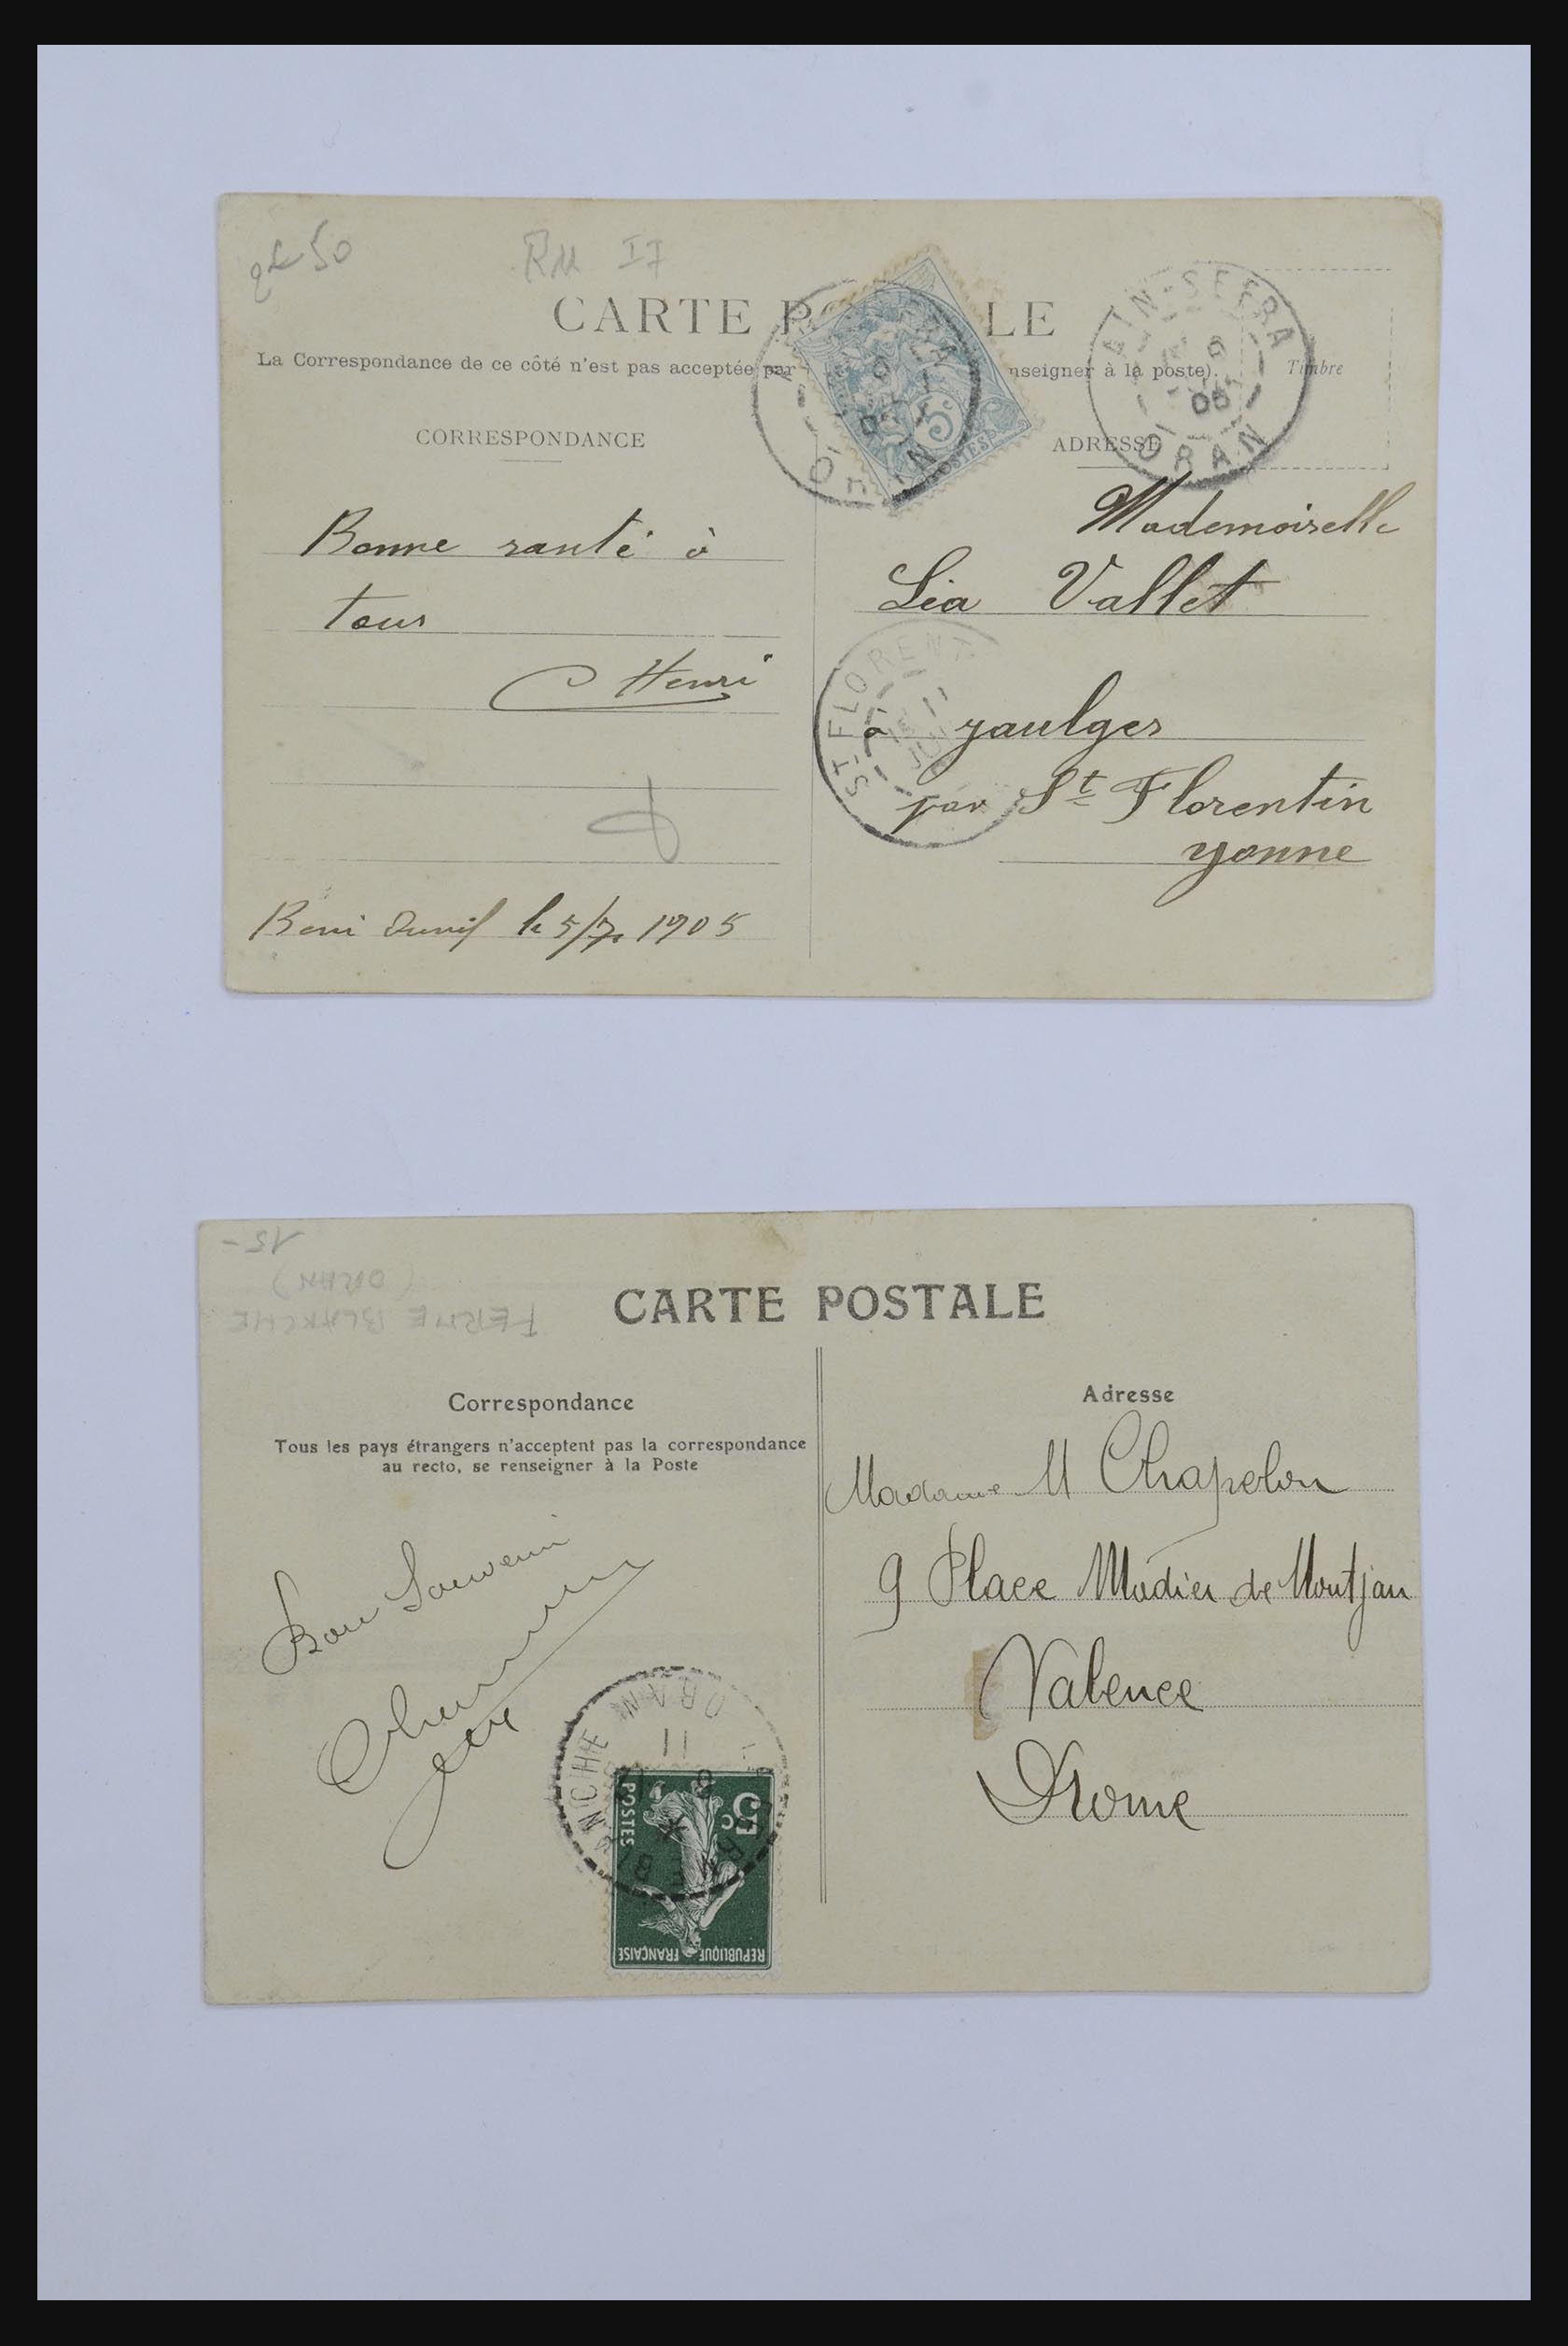 50
RM I7
CARTE P LE
La Correspondance de ce côté n'est pas acceptée par nseigner à la poste).
Timbre
AIN-SEFRA
6
05
ORAN
5c
POSTES
CORRESPONDANCE
ADRESSE
Bonne santé à
tous
Henri
Mademoiselle
Léa Vallet
à jaulges
par St Florentin
yonne
ST FLORENT
11
Beni Ounif le 5/7. 1905
15-
(ORAN)
FERME BLANCHE
CARTE POSTALE
Correspondance
Tous les pays étrangers n'acceptent pas la correspondance
au recto, se renseigner à la Poste
Adresse
Madame M Chapelon
9 Place Madier de Montjau
Valence
Drome
Bon Souvenir
ORAN
11
FERME BLANCHE
5c
POSTES
REPUBLIQUE FRANÇAISE